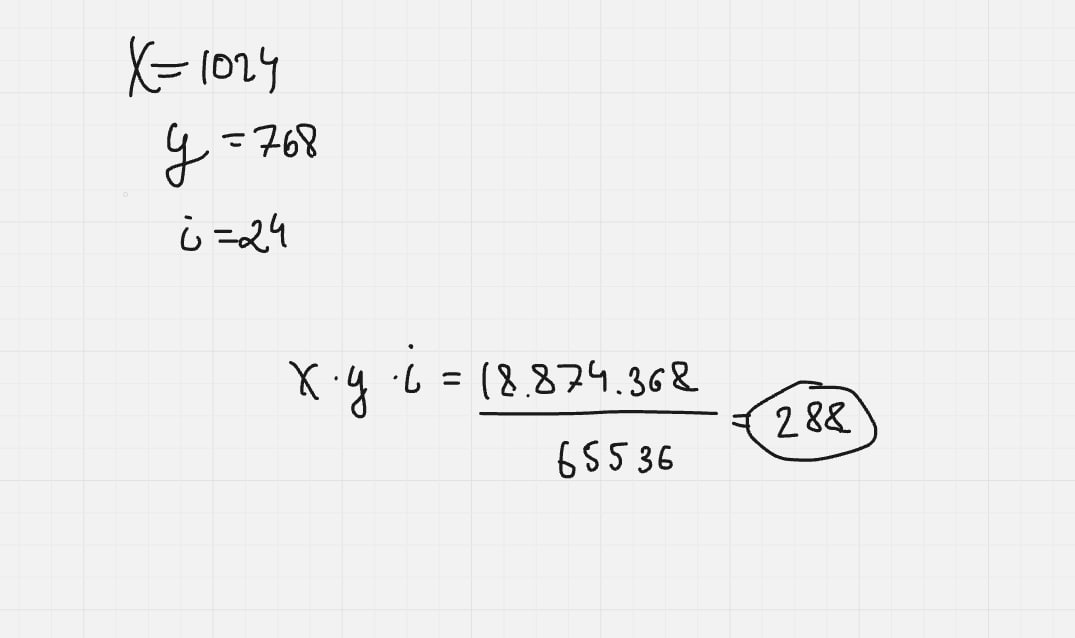 X=1024
y=768
i=24
x·y·i = 18.874.368 = 288
65536